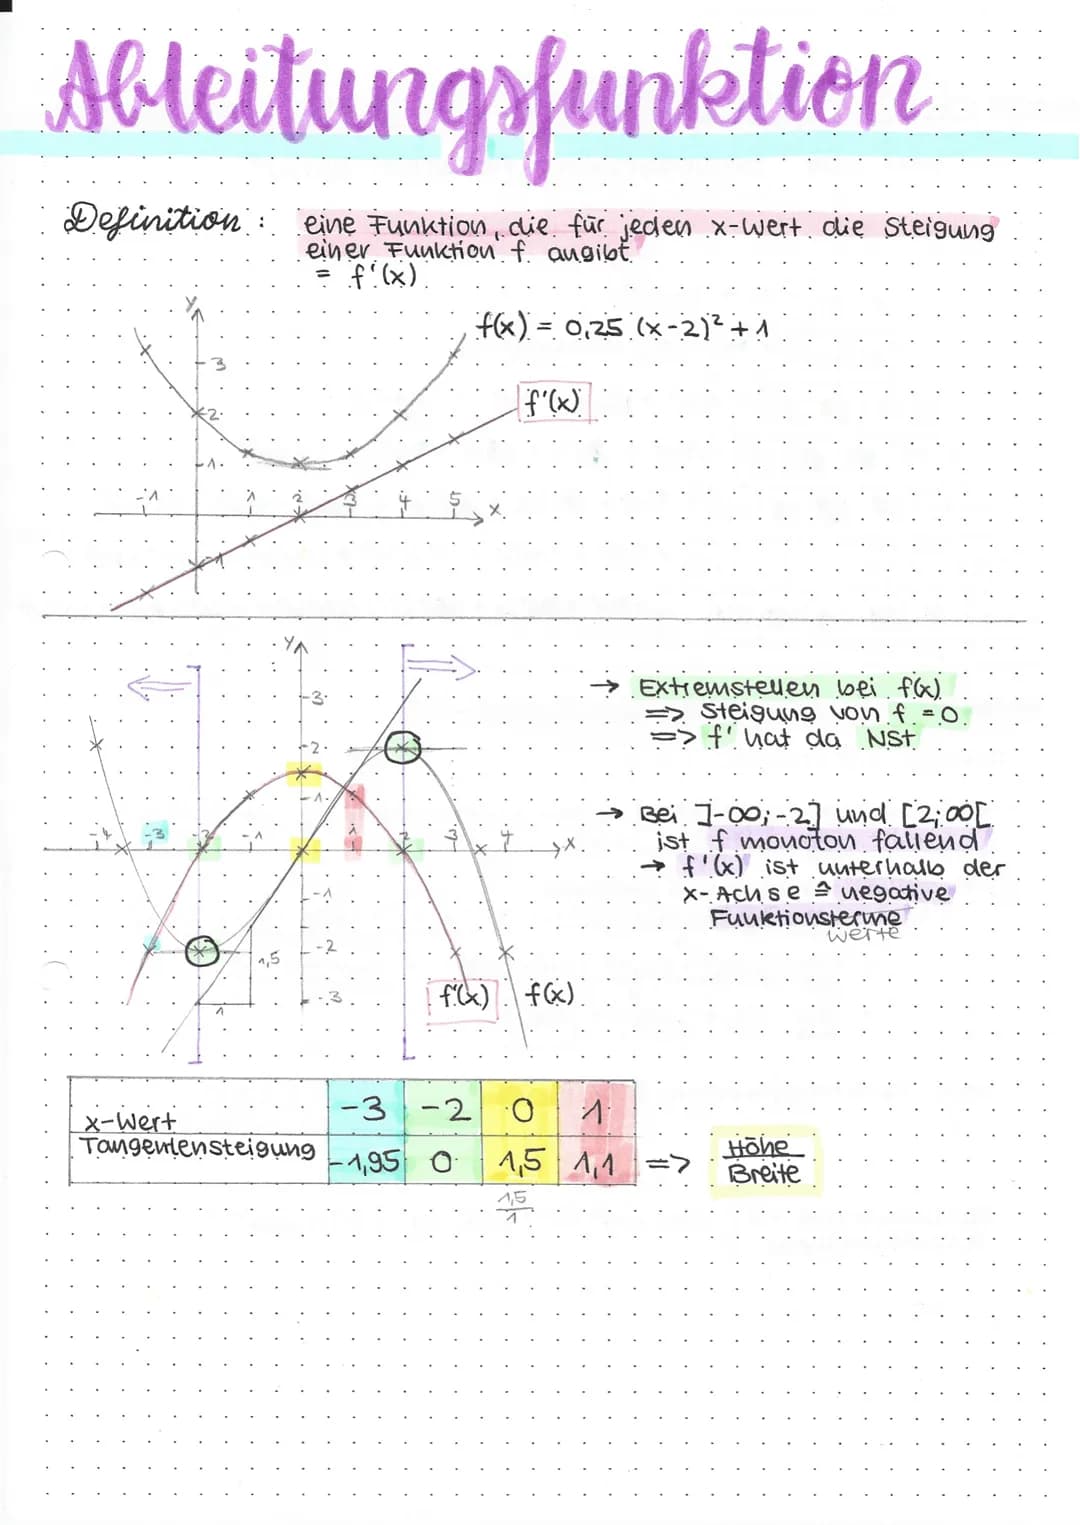 Ableitungsfunktion
Definition : eine Funktion, die für jeden x-Wert die Steigung
einer Funktion f angibt
= f'(x)
y
f(x) = 0,25 (x-2)² + 1
3
f'(x)
2
1
-1 1 2 3 4 5 x
-1
y
3
→ Extremstellen bei f(x)
=> Steigung von f = 0
2
=> f' hat da NST
1
→ Bei ]-∞;-2] und [2;∞[
-4 -3 -2 -1 1 2 3 4 x
ist f monoton fallend
→ f'(x) ist unterhalb der
-1
x-Achse ≙ negative
Funktionsterme
werte
-2
1,5
-3
f'(x) f(x)
1
x-Wert -3 -2 0 1
Tangentensteigung -1,95 0 1,5 1,1 => Höhe
Breite
1,5
1